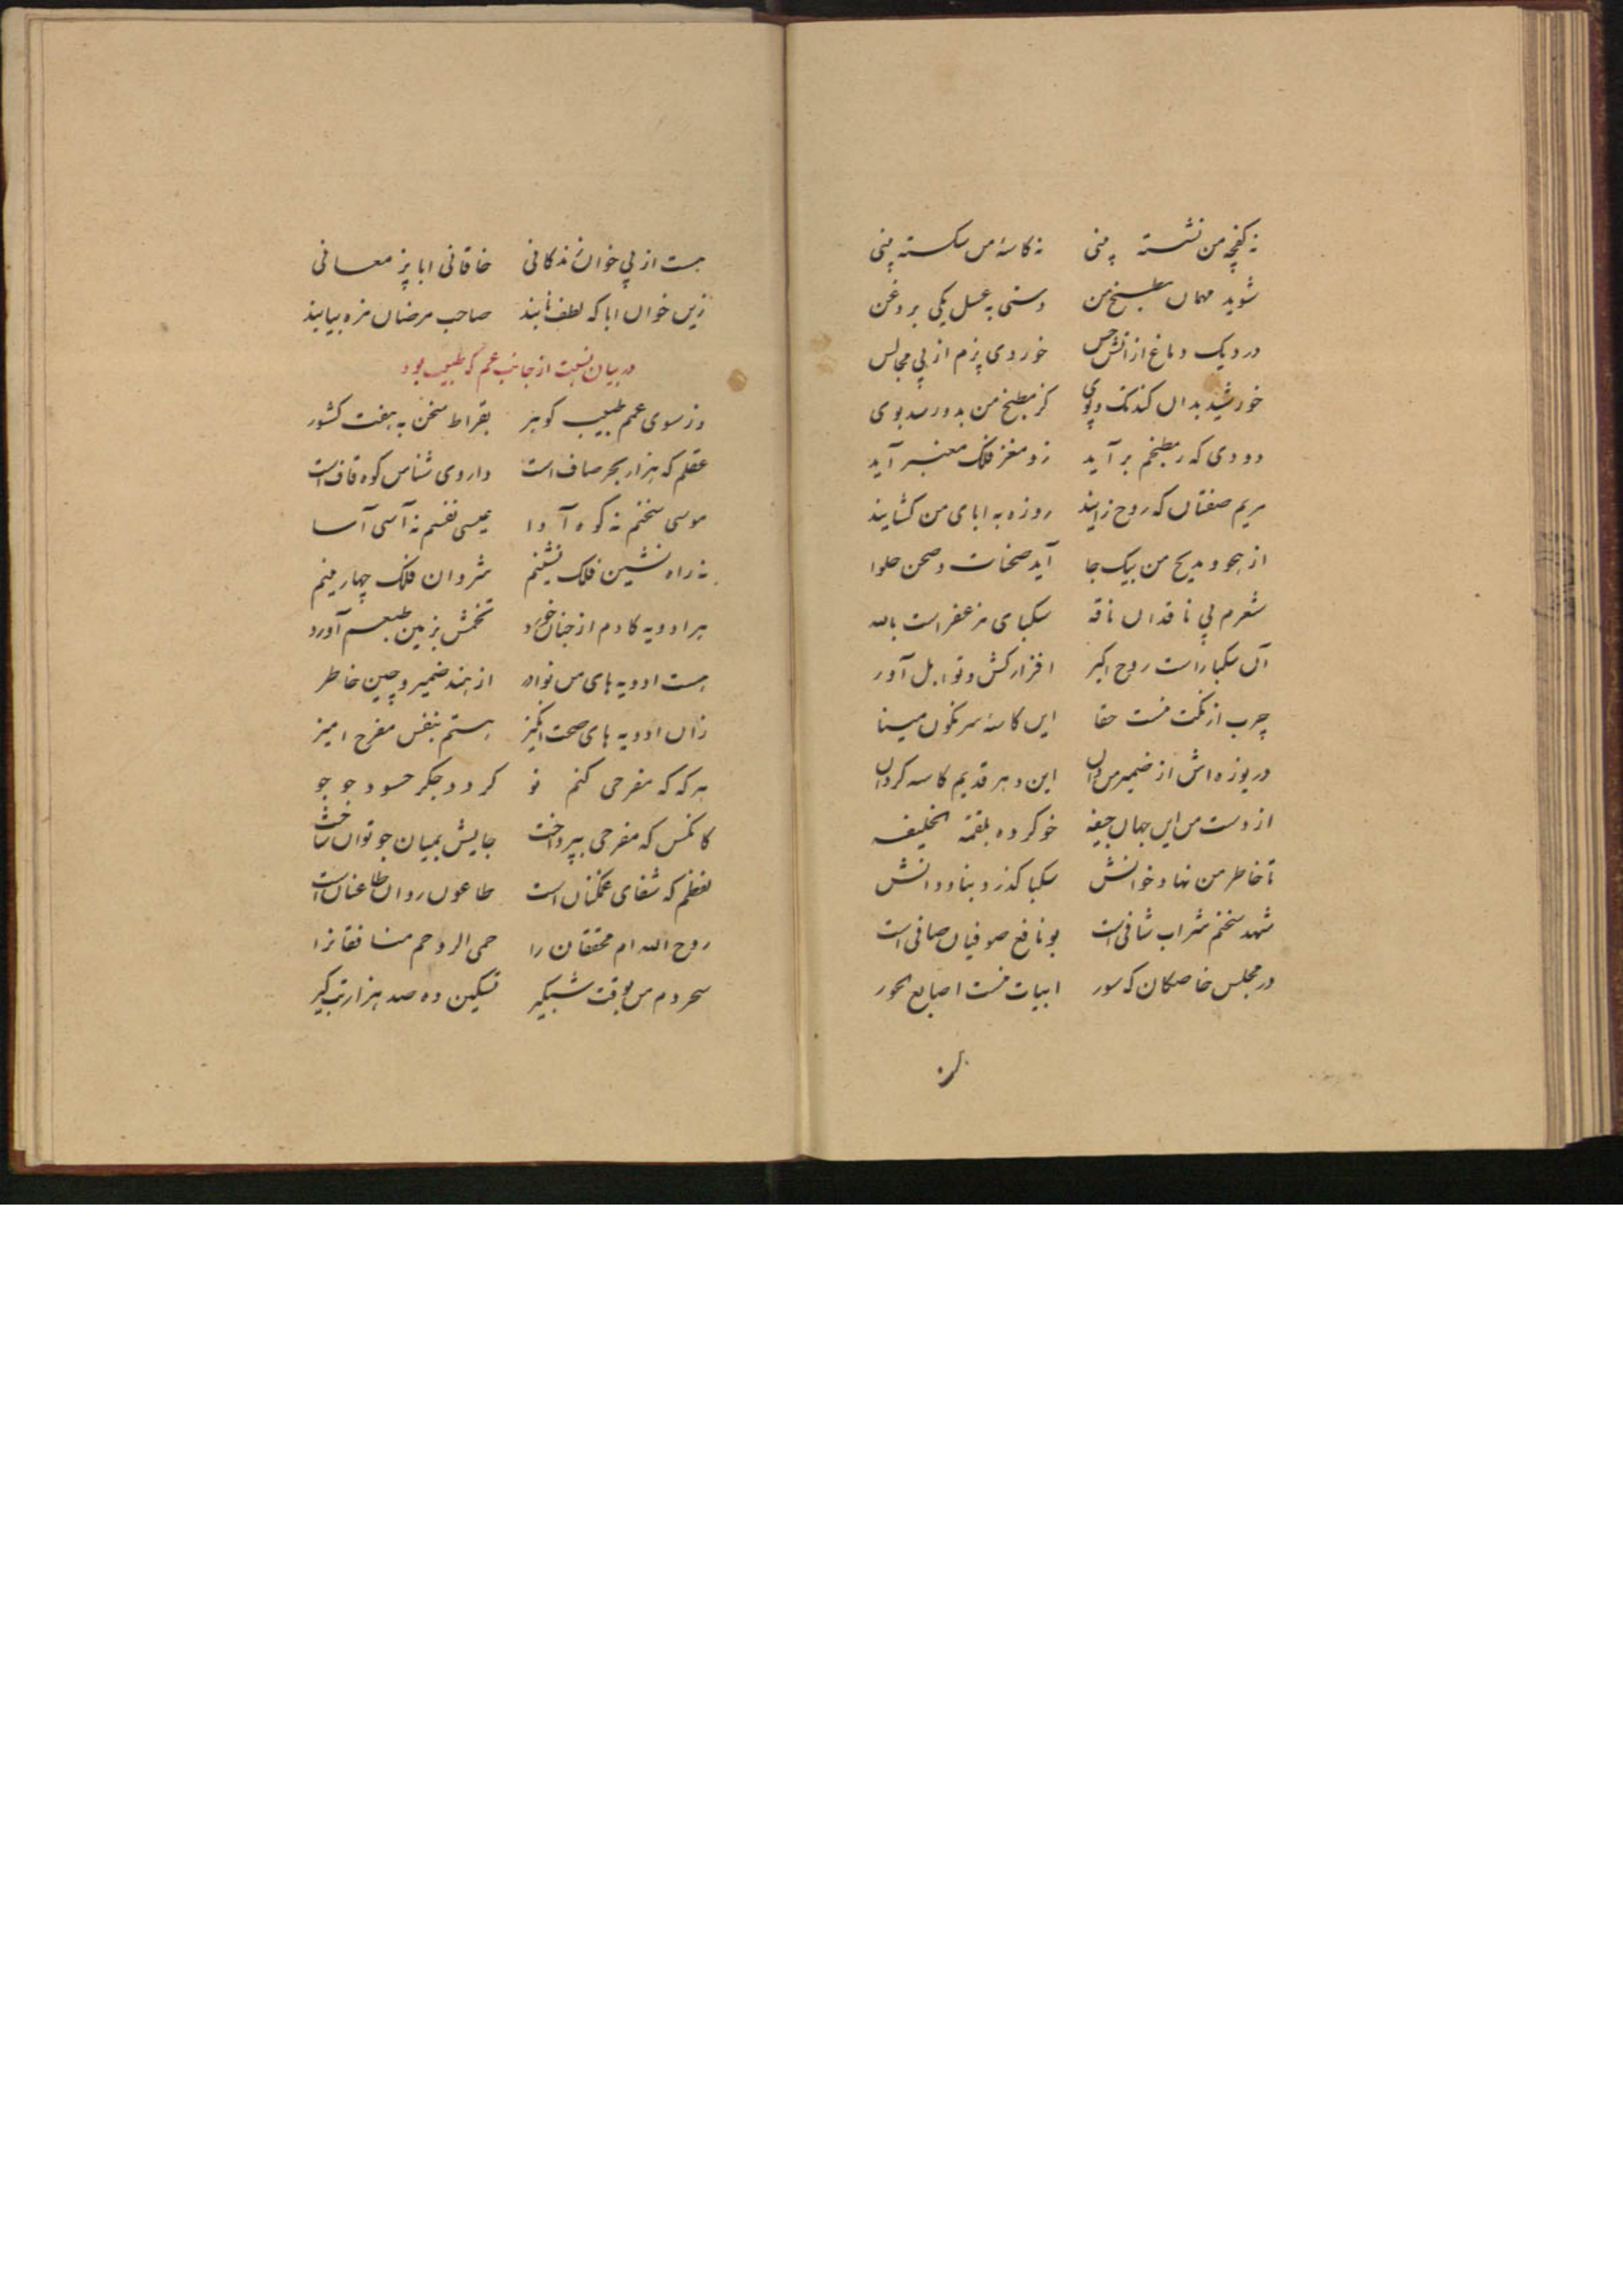 نه کفچه من نشسته بینی نه کاسه من شکسته بینی
شوید مهمان مطبخ من دستی به عسل یکی بروغن
در دیک دماغ از آتش حس خوردی پزم از پی مجالس
خورشید بدان کند تک و پوی کز مطبخ من بدو رسد بوی
دودی که ز مطبخم بر آید زو مغز فلک معنبر آید
مریم صفتان که روح زایند روزه به ابای من کشایند
از هجو و مدیح من بیک جا آید صحنات و صحن حلوا
شعرم پی ناقدان ناقه سکبای مزعفر است بالله
آن سکبا راست روح اکبر افزار کش و توابل آور
چرب از نکت منست حقا این کاسه سرنکون مینا
دریوزه اش از ضمیر من دان این دهر قدیم کاسه کردان
از دست من این جهان جیفه خو کرده بلقمة الخلیفه
تا خاطر من نهاد خوانش سکبا کذرد بناودانش
شهد سخنم شراب شافی است بو نافع صوفیان صافی است
در مجلس خاصکان که سور ابیات منست اصابع الحور
هست از پی خوان زندکانی خاقانی ابا پز معانی
زین خوان ابا که لطف تابند صاحب مرضان مزه بیابند
در بیان نسبت از جانب عم که طبیب بود
وز سوی عمم طبیب کوهر بقراط سخن به هفت کشور
عقلم که هزار بحر صاف است داروی شناس کوه قاف است
موسی سخنم نه کوه آوا عیسی نفسم نه آسی آسا
نه راه نشین فلک نشینم شروان فلک چهارمینم
هر ادویه کادم از جنان خورد تخمش بزمین طبعم آورد
هست ادویه های من نوادر از هند ضمیر و چین خاطر
زان ادویه های صحت انکیز هستم بنفس مفرح امیز
هر که که مفرحی کنم نو کردد جکر حسود جو جو
کانکس که مفرحی بپرداخت جایش بمیان جو توان ساخت
لفظم که شفای ممکنان است طاعون روان طاعنان است
روح الله ام محققان را حمی الروحم منافقانرا
سحر دم من بوقت شبکیر تسکین ده صد هزار تب کیر